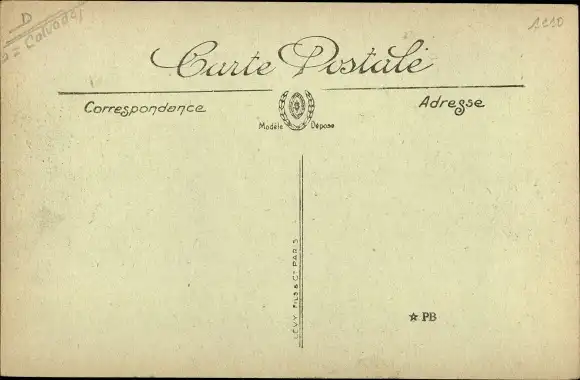 D
= Calvados
1220
Carte Postale
Correspondance
Adresse
Modèle Déposé
LEVY FILS & Cie PARIS
☆ PB